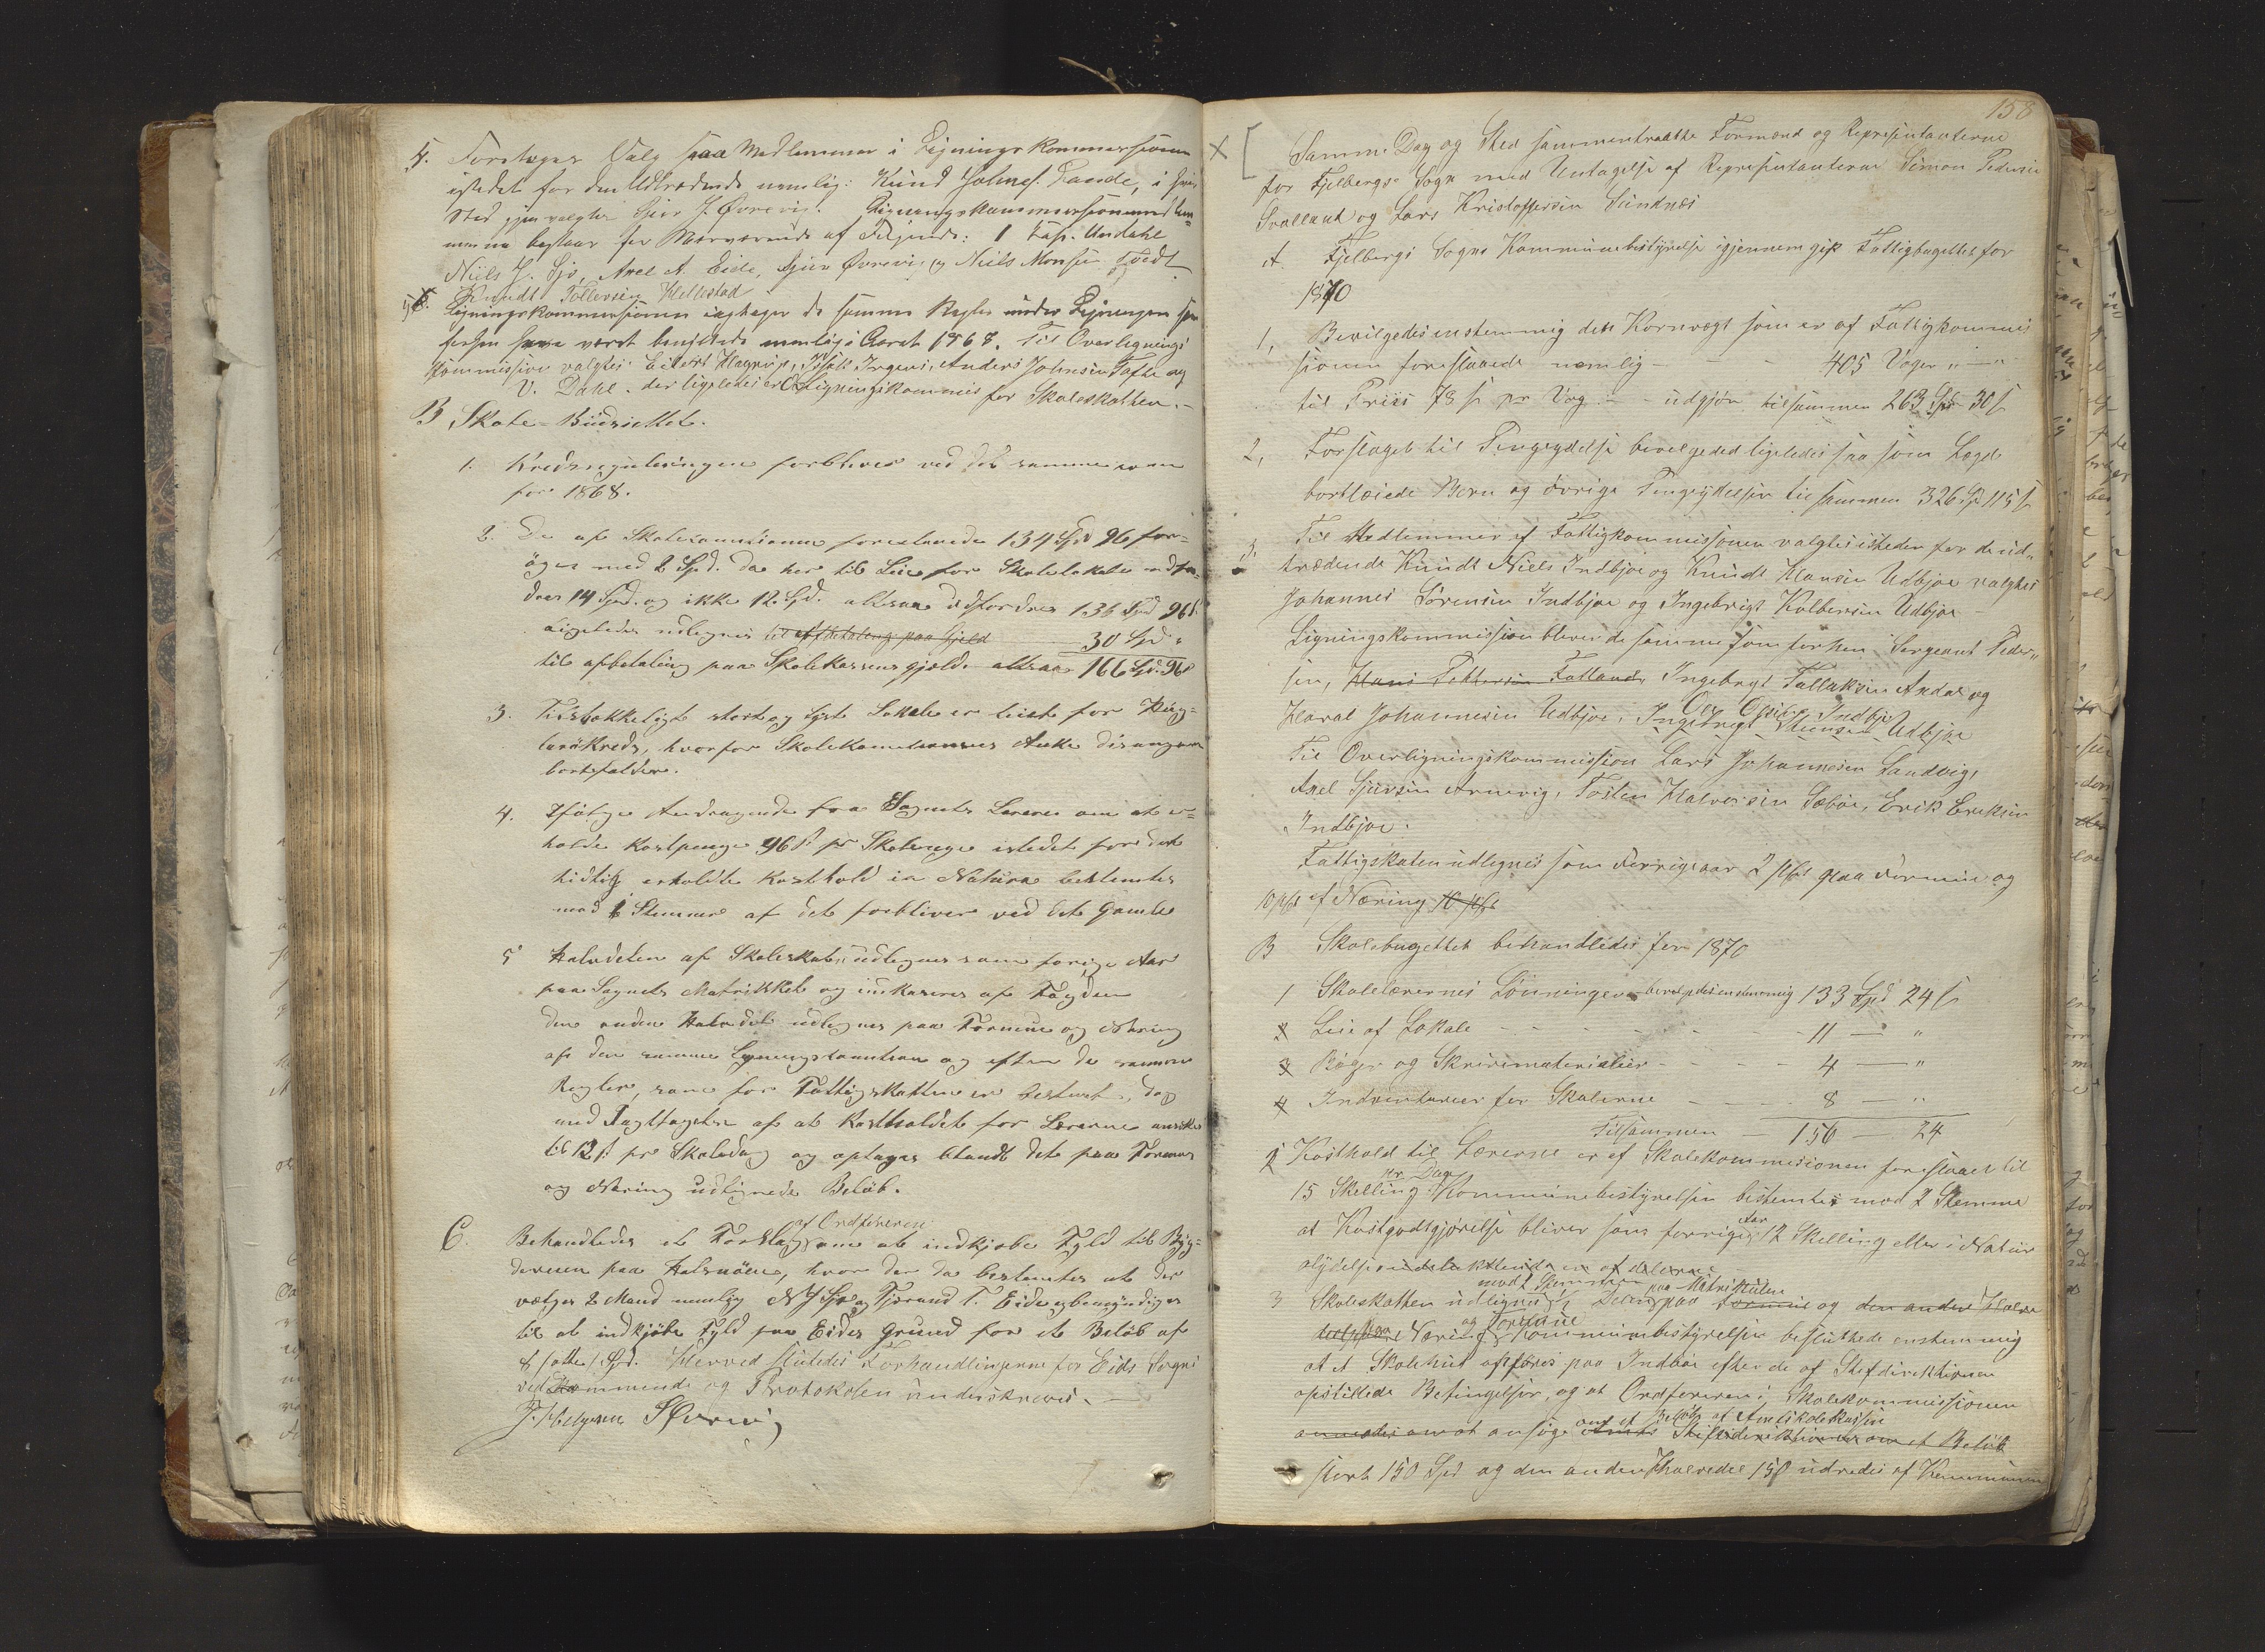 4. Foretoges Valg paa Medlemmer i Ligningskommersionen
istedet for den Udtrædende nemlig: Knud Johnes. Taarde, i hvis
Sted gjenvalgtes Sjur J. Øvrevig. Ligningskommersionen
nu bestaar for Nærværende af Følgende: 1 Kap. Undahl
Niels J. Sjo, Axel A. Eide, Sjur Øvrevig og Niels Monsen Tvedt
og Knudt Tollevsen Hellestad
5. Ligningskommersionen iagtager de samme Regler under Ligningen som
forhen have været benyttede nemlig i Aaret 1868. Til Overlignings
kommission valgtes Eilert Høgnæs, Isak Ingeri, Anders Johnsen Tofte og
V. Dahl. der ligeledes er Ligningskommis for Skoleskatten.-
B Skole-Büdsiettet.
1. Kredsreguleringen forbliver ved det samme som
for 1868.
2. De af Skolekomisionen foreslaaede 134 Spd 96 for-
øges med 2 Spd. da her til Leie for Skolelokale udfor-
dres 14 Spd. og ikke 12 Spd. altsaa udfordres 136 Spd 96 s.
Ligeledes udlignes til Afbetaling paa Gjeld 30 Spd "
til afbetaling paa Skolekassens gjeld altsaa 166 Spd. 96 s
3. Tilstrækkeligt stort og lyst Lokale er leiet for
Kreds, hvorfor Skolekomisionens Anke desangaaende
bortfalder.
4. Ifølge Andragende fra Sognets Lærere om at er-
holde Kostpenge 96 s pr Skoleuge istedet for det
hidtil erholdte Kosthold in Natura bestemtes
med 6 Stemmer at det forbliver ved det Gamle
5 Halvdelen af Skoleskat udlignes som forrige Aar
paa Sognets Matrikkel og inkaseres af Fogden
den anden Halvdel udlignes paa Formue og Næring
af den samme Ligningskomision og efter de samme
Regler, som for Fattigskatten er bestemt, dog
med Iagttagelse af at Kostholdet for Lærerne ansættes
til 12 s. pr Skoledag og optages blandt det paa Formue
og Næring udlignede Beløb.
C. Behandledes et Forslag af Ordføreren om at indkjøbe Fyld til Byg-
deveien paa Halsnøen, hvor der da bestemtes at der
vælges 2 Mand nemlig N J Sjo og Tjerand T. Eide bemyndiges
til at indkjøbe Fyld paa Eides Grund for et Beløb af
8 /otte/ Spd. Herved sluttedes Forhandlingerne for Eids Sogn
vedkommende og Protokolen underskreves. -
J. Helgesen S Øvrevig
158
Samme Dag og Sted sammentraadte Formænd og Representanterne
for Fjelbergs Sogn med Untagelse af Representanterne Simon Pedersen
Svolland og Lars Kristoffersen Sundnæs
A. Fjelbergs Sogns Kommunebestyrelse igjennemgik Fattigbugettet for
1870
1, Bevilgedes enstemmig den Kornvægt som er af Fattigkommis
sionen foreslaaede nemlig - - - 405 Voger " - "
til Priis 78 s pr Vog. - - udgjør tilsammen 263 Spd - 30 s
2, Forslaget til Pengeydelse bevilgedes ligeledes saa som Lægd
bortleiede Børn og øvrige Pengeydelser tilsammen 326 Sp 115 s
3. Til Medlemmer af Fattigkommissjonen valgtes isteden for de ud-
trædende Knudt Niels Indbjoe og Knudt Hansen Udbjoe valgtes
Johannes Sörensen Indbjoe og Ingebrigt Kolbensen Udbjoe -
Ligningskommissjion blev de samme som forhen Sergeant Peder-
sen, Hans Pettersen Fatland, Ingebrigt Tallaksen Andal og
Ole Olsen Indbjo
Haral Johannesen Udbjoe, Ingebrigt Steensen Udbjoe
Til Overligningskommission Lars Johannesen Sandvig,
Axel Sjursen Arnevig, Tosten Halvorsen Sæbøe, Erik Eriksen
Indbjoe.
Fattigskaten udlignes som forrige aar 2 s paa Formue og
10 s af Næring 10
B Skolebugettet behandledes for 1870
1 Skolelærernes Lønninger bevilgedes enstemmig 133 Spd 24 s
2 Leie af Lokale - - - 11 - "
3 Bøger og Skrivematerialier - - - 4 - "
4 Indventarier for Skolerne - - 8 - "
Tilsammen - 156 - 24
2 Kosthold til Lærerne er af Skolekommisionen foreslaaet til
15 Skelling pr Dag Kommunebestyrelsen bestemtes mod 2 Stemme
at Kostgodtgjørelse bliver som forrige Aar 12 Skelling eller i Natur
slydelse
3 Skoleskatten udlignes mod 1 Stemme 1/2 Delen paa Matrikulen paa Formue og den anden Halv
deel paa Næring og Formue Kommunebestyrelsen besluttede enstemmig
at et Skolehus opføres paa Indbøe efter de af Stiftdirektionen
opstillede Betingelser, og at Ordføreren i Skolekommissionen
anmodes om at ansøge om et Beløb af Amtskolekassen Amts Stiftsdirektionen om et Beløb
stort 150 Spd og den anden Halvedel 150 udredes af Kommunen